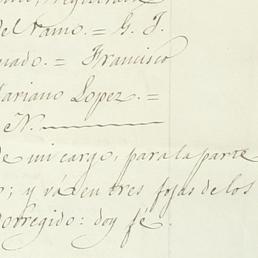 del Ramo. = G. J.
Francisco
Mariano Lopez. =
N.
de mi cargo, para la parte
; y vá en tres fojas de los
corregido: doy fé.